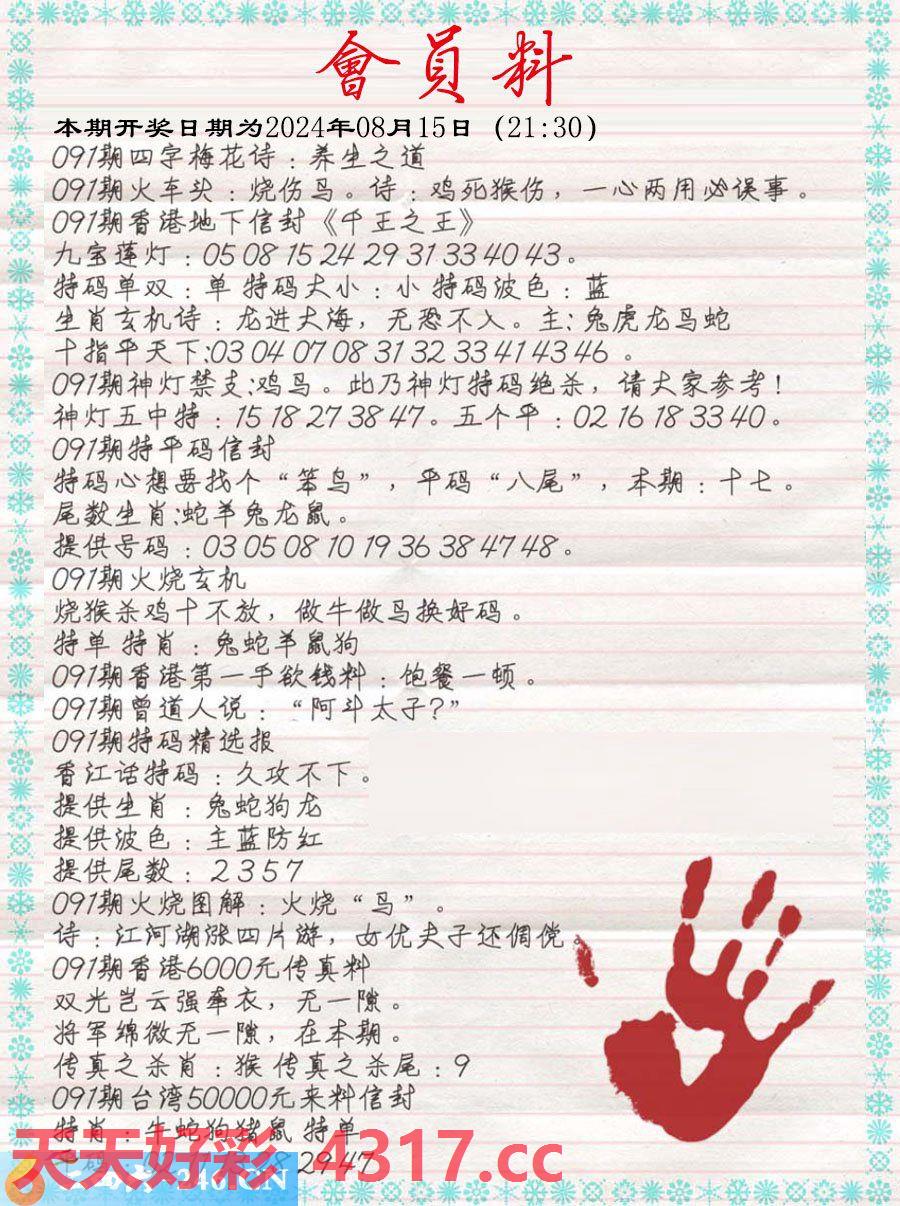 會員料
本期开奖日期为2024年08月15日（21:30）
091期四字梅花诗：养生之道
091期火车头：烧伤鸟。诗：鸡死猴伤，一心两用必误事。
091期香港地下信封《千王之王》
九宝莲灯：05 08 15 24 29 31 33 40 43。
特码单双：单 特码大小：小 特码波色：蓝
生肖玄机诗：龙进大海，无恐不入。主：兔虎龙鸟蛇
十指平天下:03 04 07 08 31 32 33 41 43 46 。
091期神灯禁支:鸡鸟。此乃神灯特码绝杀，请大家参考！
神灯五中特：15 18 27 38 47。五个平：02 16 18 33 40。
091期特平码信封
特码心想要找个“笨鸟”，平码“八尾”，本期：十七。
尾数生肖:蛇羊兔龙鼠。
提供号码：03 05 08 10 19 36 38 47 48。
091期火烧玄机
烧猴杀鸡十不放，做牛做鸟换好码。
特单 特肖：兔蛇羊鼠狗
091期香港第一手欲钱料：饱餐一顿。
091期曾道人说：“阿斗太子?”
091期特码精选报
香江话特码：久攻不下。
提供生肖：兔蛇狗龙
提供波色：主蓝防红
提供尾数：2 3 5 7
091期火烧图解：火烧“鸟”。
诗：江河湖涨四片游，女优夫子还倜傥。
091期香港6000元传真料
双光岂云强牵衣，无一隙。
将军绵微无一隙，在本期。
传真之杀肖：猴 传真之杀尾：9
091期台湾50000元来料信封
特肖：牛蛇狗猪鼠 特单
天天好彩 4317.cc
29 47
246.CN